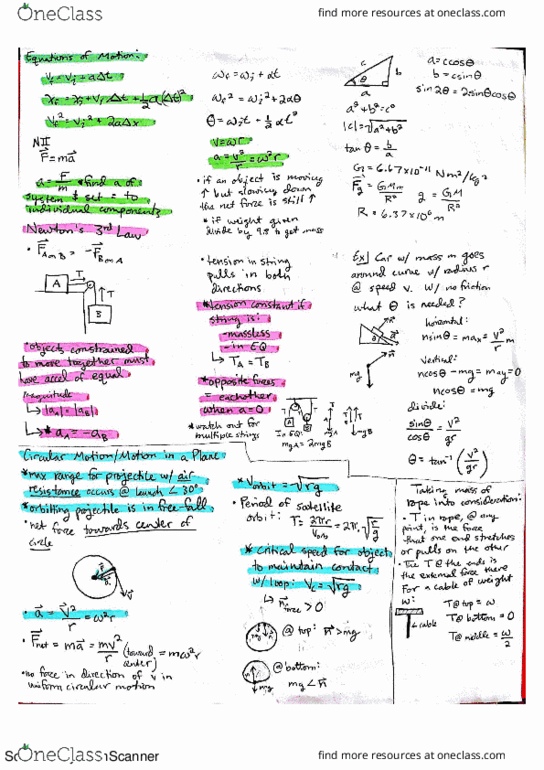 OneClass
find more resources at oneclass.com
Equations of Motion:
v_f = v_i + aΔt
x_f = x_i + v_iΔt + ½a(Δt)²
v_f² = v_i² + 2aΔx
NII
F = ma
a = F/m *find a of
system & set = to
individual components
Newton's 3rd Law
• F_A on B = -F_B on A
A
T
↑T
B
• objects constrained
to move together must
have accel of equal
magnitude
↳ |a_A| = |a_B|
↳ * a_A = -a_B
ω_f = ω_i + αt
ω_f² = ω_i² + 2αθ
θ = ω_i t + ½αt²
v = ωr
a = v²/r = ω²r
• if an object is moving
↑ but slowing down
the net force is still ↑
* if weight given
divide by 9.8 to get mass
• tension in string
pulls in both
directions
*tension constant if
string is:
-massless
-in EQ
↳ T_A = T_B
*opposite forces
= eachother
when a = 0
*watch out for
multiple strings
In EQ:
m_A g = 2m_B g
c
b
θ
a
a = c cosθ
b = c sinθ
sin2θ = 2sinθcosθ
a² + b² = c²
|c| = √a² + b²
tanθ = b/a
G = 6.67×10⁻¹¹ Nm²/kg²
F_g = GMm/R² g = GM/R²
R = 6.37×10⁶ m
Ex| Car w/ mass m goes
around curve w/ radius r
@ speed v. w/ no friction
what θ is needed?
horizontal:
nsinθ = ma_x = v²/r m
vertical:
ncosθ - mg = ma_y = 0
ncosθ = mg
mg
divide:
sinθ/cosθ = v²/gr
θ = tan⁻¹(v²/gr)
Circular Motion/Motion in a Plane
*max range for projectile w/ air
resistance occurs @ launch ∠ 30°
*orbiting projectile is in free-fall
• net force towards center of
circle
• a = v²/r = ω²r
• F_net = ma = mv²/r (toward center) = mω²r
• no force in direction of v in
uniform circular motion
*v_orbit = √rg
• Period of satellite
orbit: T = 2πr/v_orb = 2π√r/g
* critical speed for object
to maintain contact
w/ loop: v_c = √rg
↳ n_force > 0
@ top: n > mg
@ bottom:
mg < n
mg
Taking mass of
rope into consideration:
• T in rope, @ any
point, is the force
that one end stretches
or pulls on the other
• the T @ the ends is
the external force there
For a cable of weight
w:
cable
T @ top = w
T @ bottom = 0
T @ middle = w/2
OneClass
Scanner
find more resources at oneclass.com